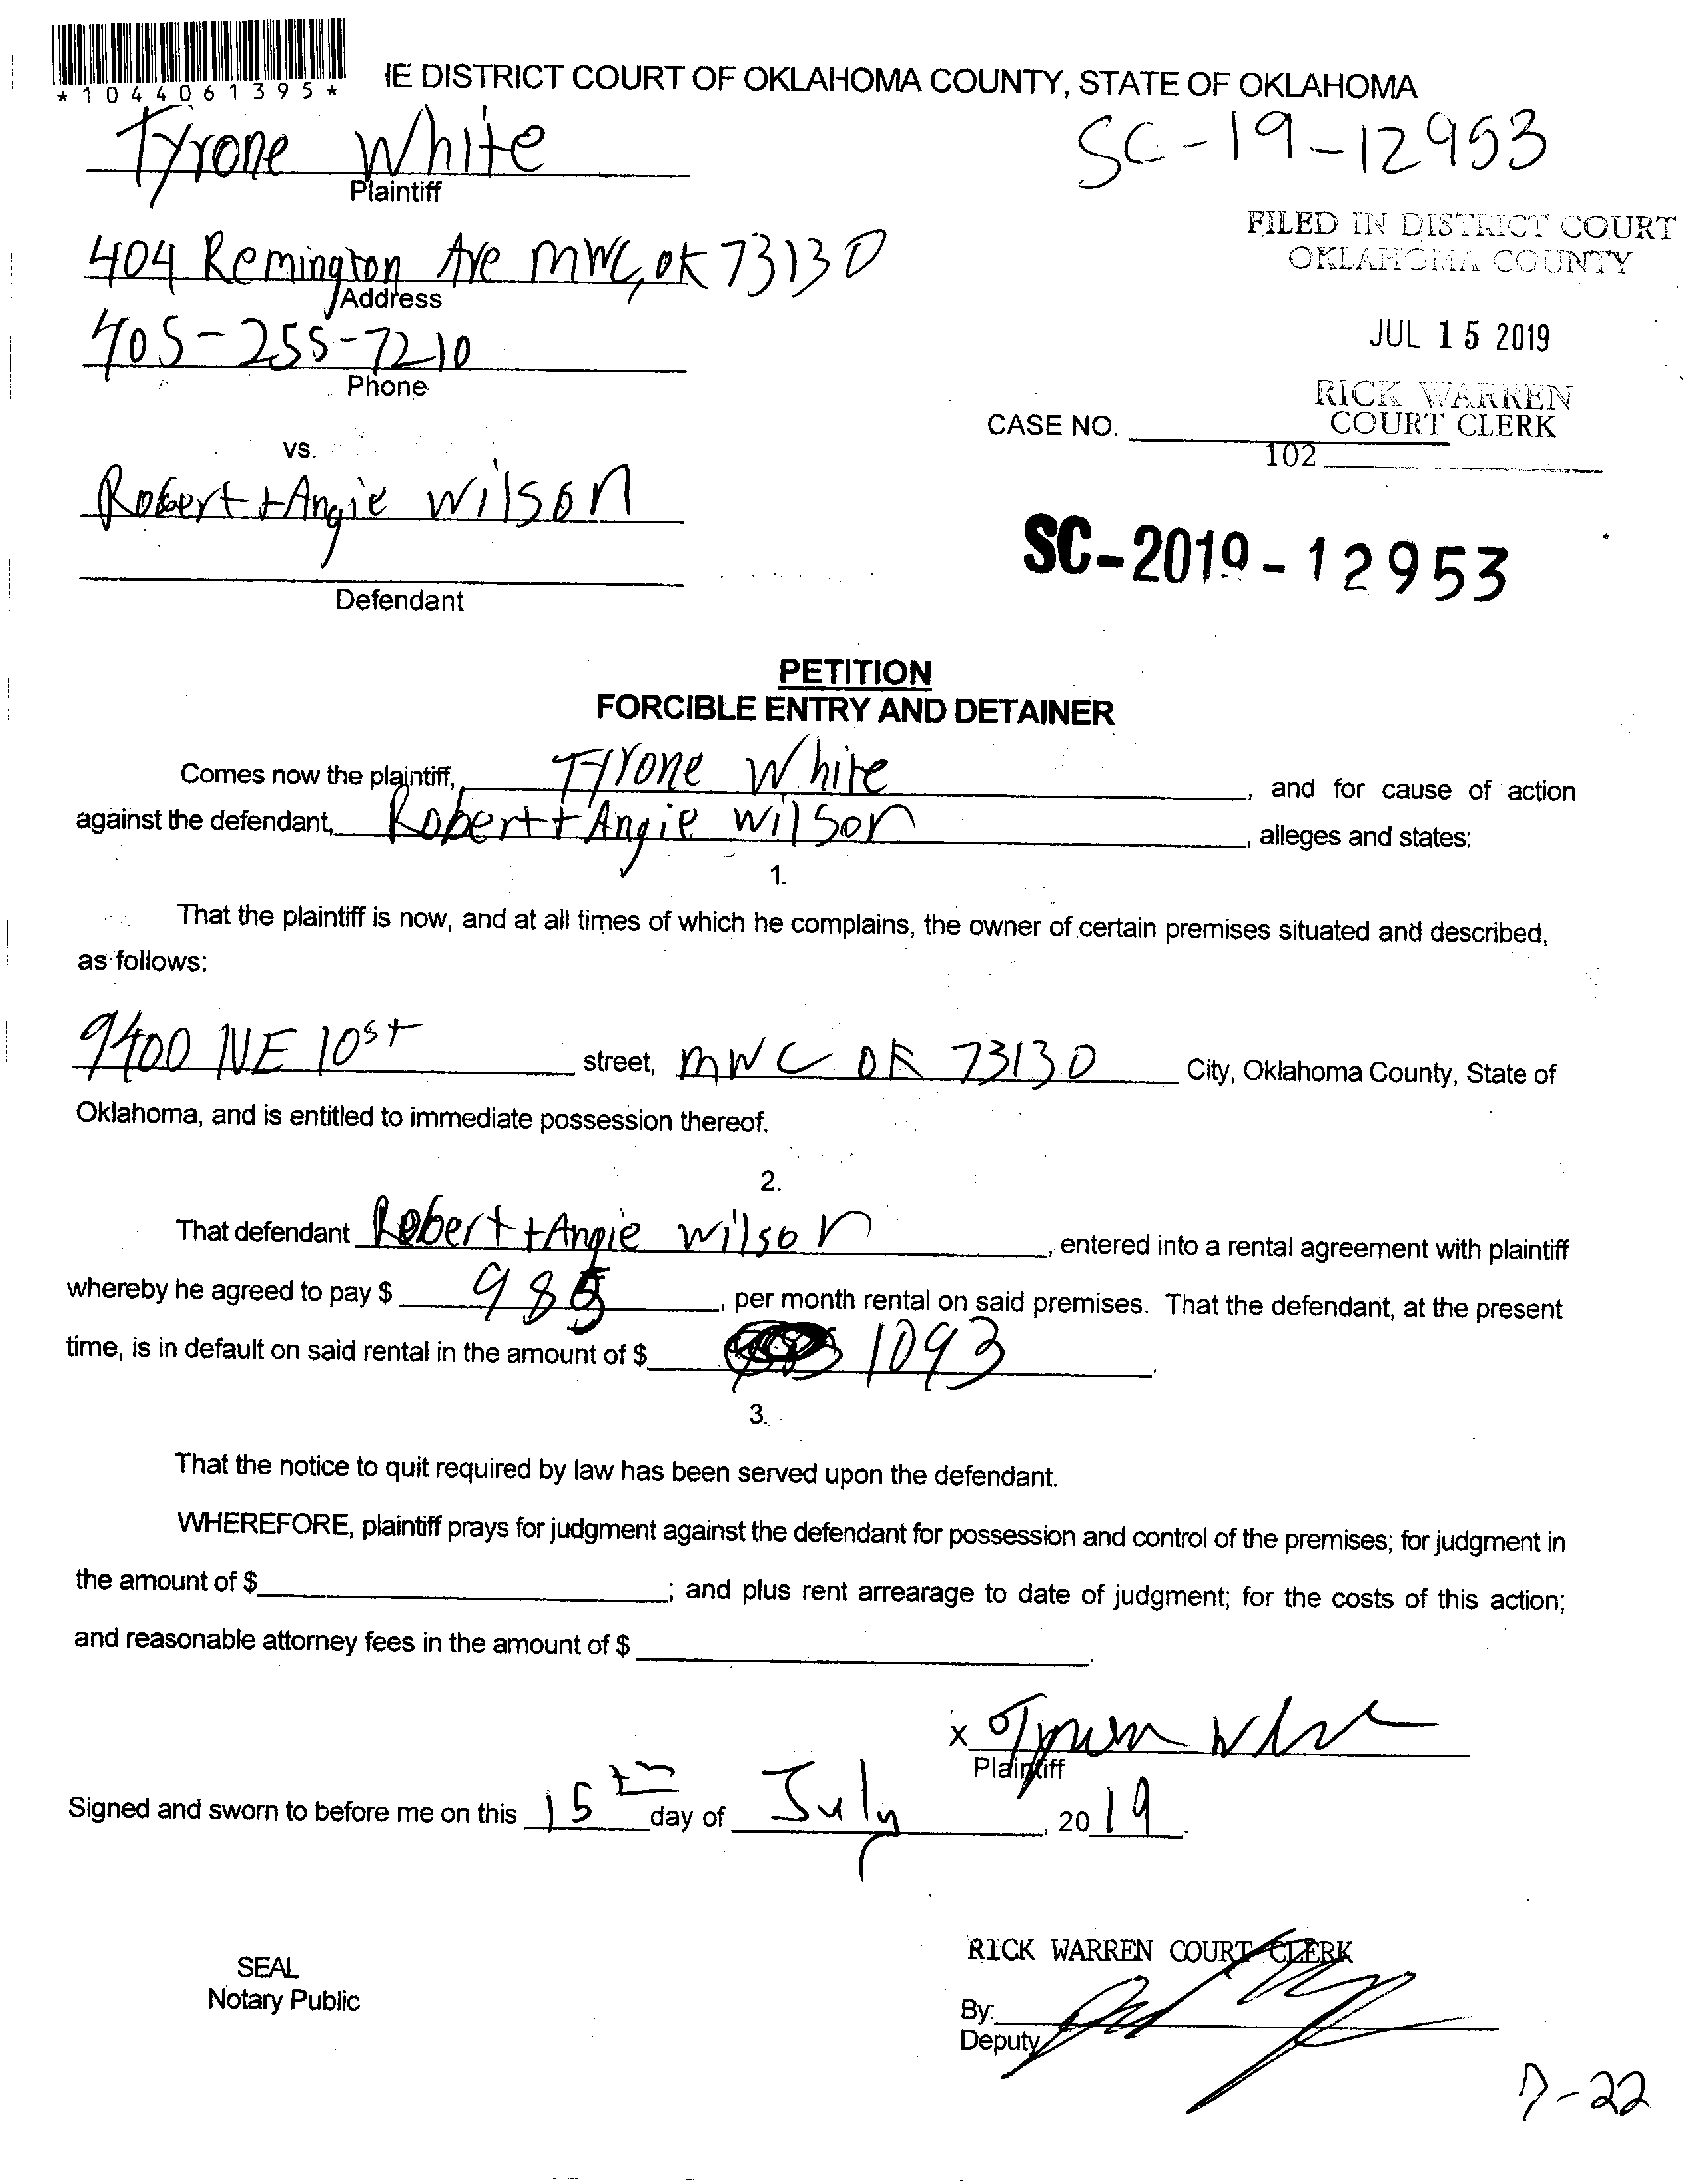 *1044061395*
IE DISTRICT COURT OF OKLAHOMA COUNTY, STATE OF OKLAHOMA
Tyrone White
Plaintiff
SC-19-12953
404 Remington Ave MWC, OK 73130
Address
FILED IN DISTRICT COURT
OKLAHOMA COUNTY
405-255-7210
Phone
JUL 15 2019
RICK WARREN
COURT CLERK
CASE NO.
102
vs.
Robert + Angie Wilson
Defendant
SC-2019-12953
PETITION
FORCIBLE ENTRY AND DETAINER
Comes now the plaintiff, Tyrone White, and for cause of action
against the defendant, Robert + Angie Wilson, alleges and states:
1.
That the plaintiff is now, and at all times of which he complains, the owner of certain premises situated and described,
as follows:
9400 NE 10st street, MWC OK 73130 City, Oklahoma County, State of
Oklahoma, and is entitled to immediate possession thereof.
2.
That defendant Robert + Angie Wilson, entered into a rental agreement with plaintiff
whereby he agreed to pay $ 985, per month rental on said premises. That the defendant, at the present
time, is in default on said rental in the amount of $ 1093.
3.
That the notice to quit required by law has been served upon the defendant.
WHEREFORE, plaintiff prays for judgment against the defendant for possession and control of the premises; for judgment in
the amount of $ ; and plus rent arrearage to date of judgment; for the costs of this action;
and reasonable attorney fees in the amount of $ .
x Tyrone White
Plaintiff
Signed and sworn to before me on this 15th day of July, 2019.
SEAL
Notary Public
RICK WARREN COURT CLERK
By:
Deputy
7-22